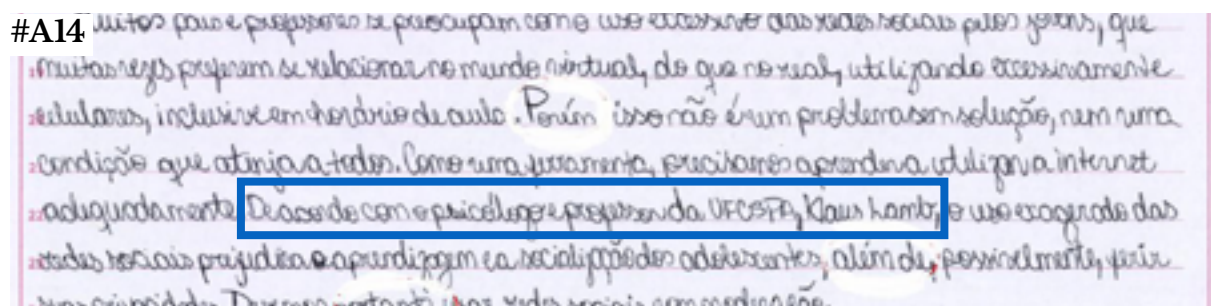 #A14
muitos pais e professores se preocupam com o uso excessivo das redes sociais pelos jovens, que
muitas vezes preferem se relacionar no mundo virtual, do que no real, utilizando excessivamente
celulares, inclusive em horário de aula. Porém isso não é um problema sem solução, nem uma
condição que atinja a todos. Como uma ferramenta, precisamos aprender a utilizar a internet
22 adequadamente. De acordo com o psicólogo e professor da UFCSPA, Klaus Lamb, o uso exagerado das
redes sociais prejudica a aprendizagem e a socialização dos adolescentes, além de, possivelmente, ferir
suas privacidades. Devemos, portanto, usar redes sociais com moderação.